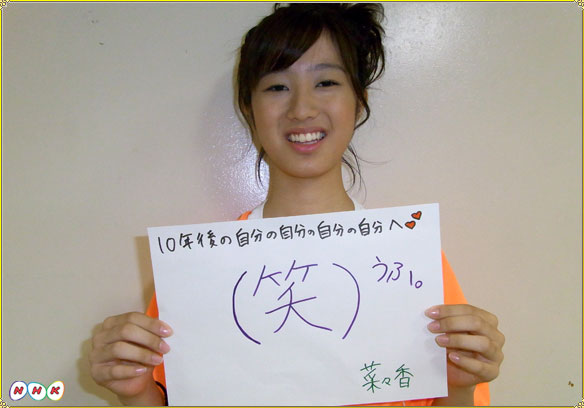 10年後の自分の自分の自分の自分へ
(笑)
うふ。
菜々香
NHK